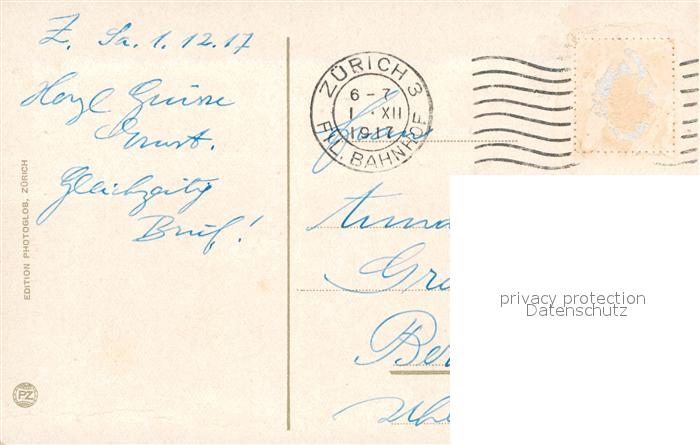 Z. Sa. 1. 12. 17
Herzl Grüsse
Ernst.
Gleichzeitig
Brief!
EDITION PHOTOGLOB, ZÜRICH
PZ
ZÜRICH 3
6-7
1. XII
1917
FIL. BAHNHOF
privacy protection
Datenschutz